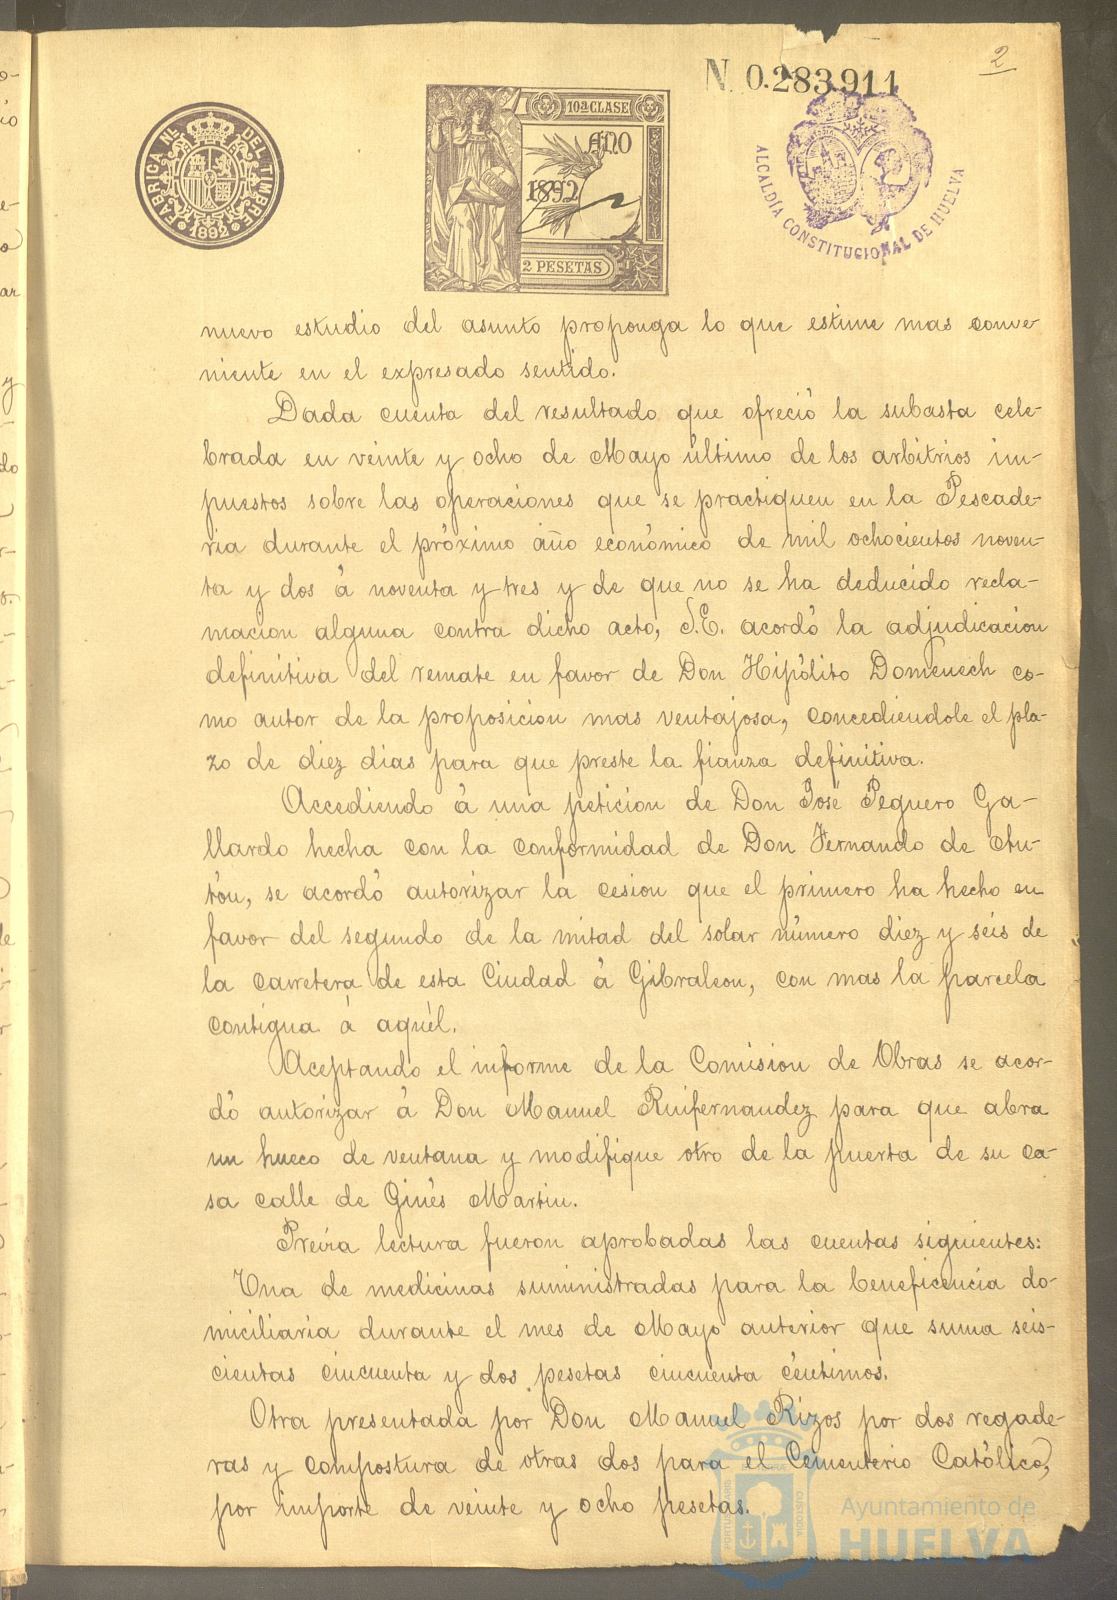 2
N. 0.283,911
FABRICA NL. DEL TIMBRE
1892
10ª CLASE
AÑO
1892
2 PESETAS
ALCALDÍA CONSTITUCIONAL DE HUELVA
nuevo estudio del asunto proponga lo que estime mas conve-
niente en el expresado sentido.
Dada cuenta del resultado que ofreció la subasta cele-
brada en veinte y ocho de Mayo último de los arbitrios im-
puestos sobre las operaciones que se practiquen en la Pescade-
ria durante el próximo año económico de mil ochocientos noven-
ta y dos á noventa y tres y de que no se ha deducido recla-
macion alguna contra dicho acto, S.E. acordó la adjudicacion
definitiva del remate en favor de Don Hipólito Domenech co-
mo autor de la proposicion mas ventajosa, concediendole el pla-
zo de diez dias para que preste la fianza definitiva.
Accediendo á una peticion de Don José Peguero Ga-
llardo hecha con la conformidad de Don Fernando de
se acordó autorizar la cesion que el primero ha hecho en
favor del segundo de la mitad del solar número diez y séis de
la carretera de esta Ciudad á Gibraleon, con mas la parcela
contigua á aquél.
Aceptando el informe de la Comision de Obras se acor-
dó autorizar á Don Manuel Ruifernandez para que abra
un hueco de ventana y modifique otro de la puerta de su ca-
sa calle de Ginés Martin.
Prévia lectura fueron aprobadas las cuentas siguientes:
Una de medicinas suministradas para la beneficencia do-
miciliaria durante el mes de Mayo anterior que suma seis-
cientas cincuenta y dos pesetas cincuenta céntimos.
Otra presentada por Don Manuel Rizos por dos regade-
ras y compostura de otras dos para el Cementerio Católico,
por importe de veinte y ocho pesetas.
Ayuntamiento de
HUELVA